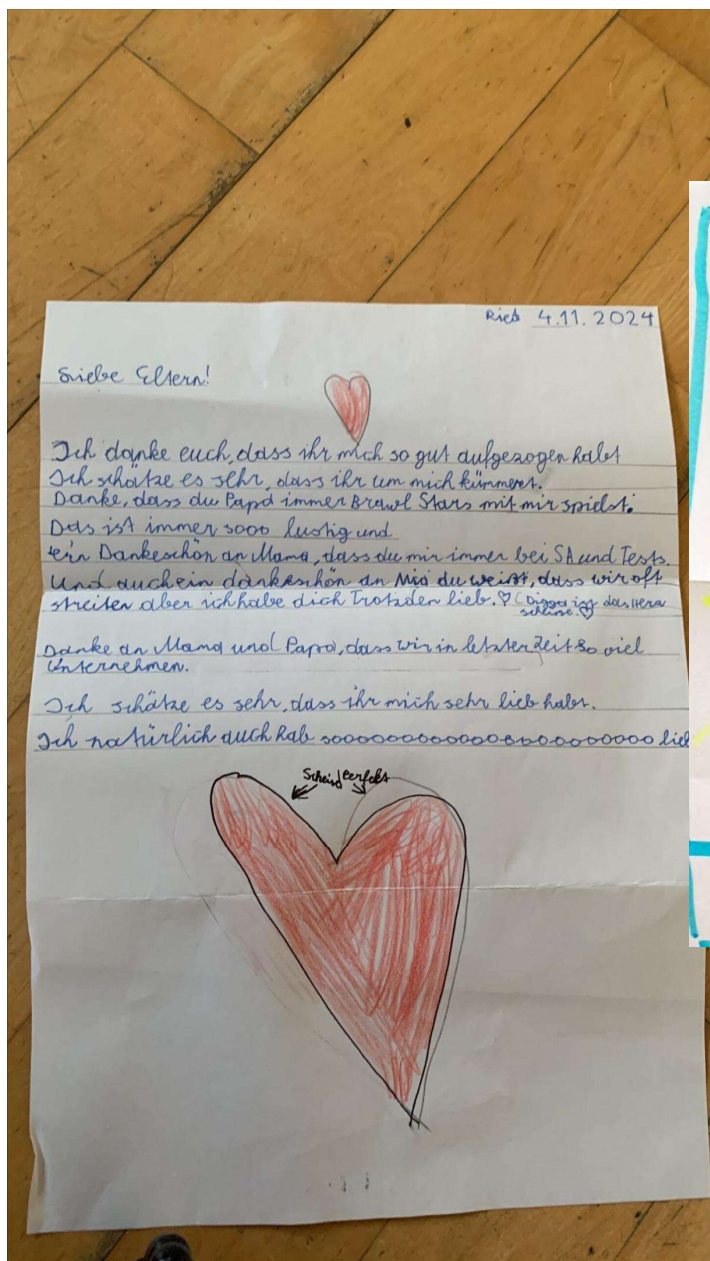 Ried 4.11.2024
Liebe Eltern!
Ich danke euch, dass ihr mich so gut aufgezogen habt
Ich schätze es sehr, dass ihr um mich kümmert.
Danke, dass du Papa immer Brawl Stars mit mir spielst.
Das ist immer sooo lustig und
ein Dankeschön an Mama, dass du mir immer bei SA und Tests.
Und auch ein dankeschön an Mia du weist, dass wir oft
streiten aber ich habe dich Trotzden lieb. ♡ (Digga ist das Herz
scheise. ♡
Danke an Mama und Papa, dass wir in letzter Zeit so viel
Unternehmen.
Ich schätze es sehr, dass ihr mich sehr lieb habt.
Ich natürlich auch hab soooooooooooooooooooooo lieb